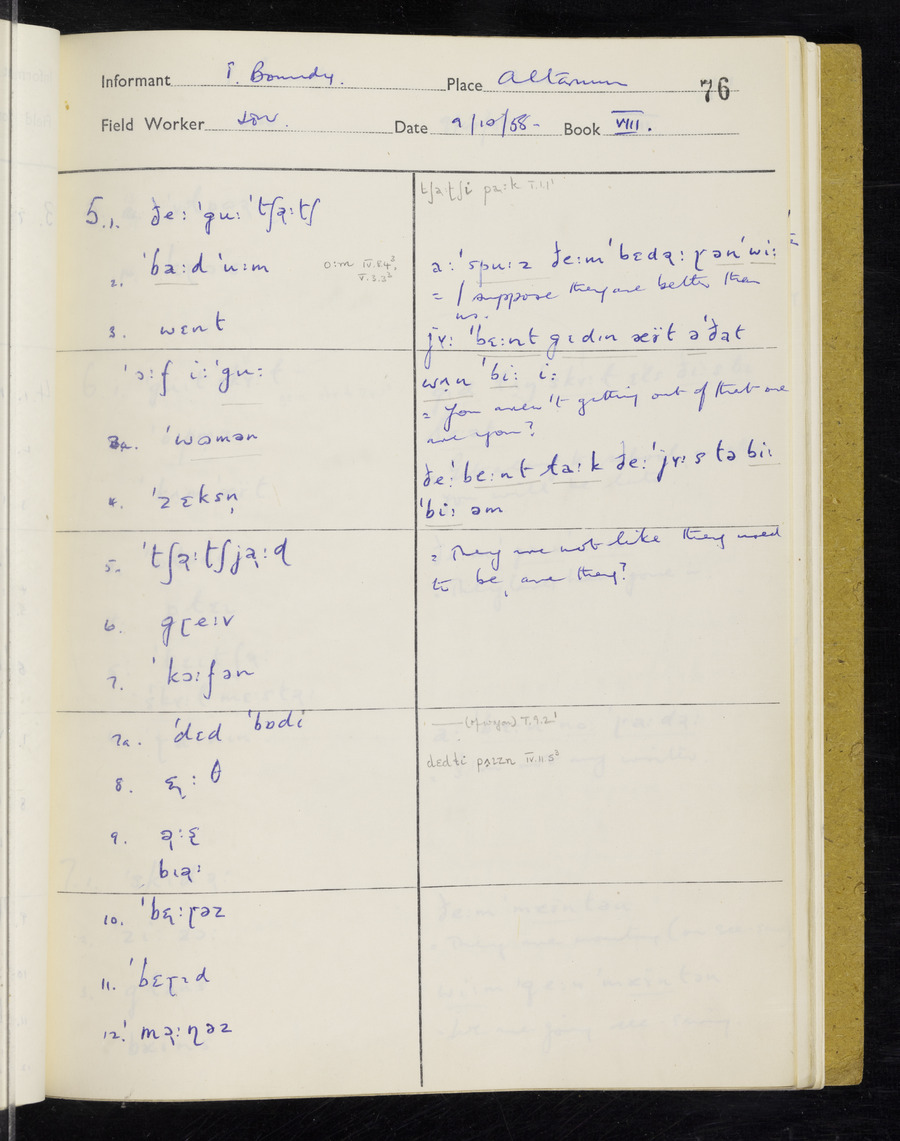 Informant T. Boundy. Place Altarnun 76
Field Worker Date 9/10/58 - Book VIII.
5.1. ðeː ˈguː ˈtʃɑ̨ːtʃ
2. ˈbaːd ˈuːm oːm IV.
V.3.3
3. wɛnt
ˈɔːf iː ˈguː
3a. ˈwɔmən
4. ˈzɛksn̩
5. ˈtʃɑ̨ːtʃjɑ̨ːd
6. gɽeːv
7. ˈkɔːfən
7a. ˈdɛd ˈbɒdi
8. ɛɽː θ
9. ə̨ːɽ
bɪə̨ː
10. ˈbɛ̨ːɽəz
11. ˈbɛɽɪd
12. mɔ̨ːnəz
pɑːk V.1.1
aːˈspuːz ðeːmˈbɛdə̨ː ɽənˈwiː
= I suppose they are better than
us.
jʏː ˈbɛːnt gɪdɪn æʏt əˈðat
wʌn ˈbiː iː
= You aren't getting out of that one
are you?
ðeːˈbeːnt laːk ðeːˈjʏːs tə biː
ˈbiː əm
= They are not like they used
to be, are they?
V.9.2
dɛdti IV.11.5